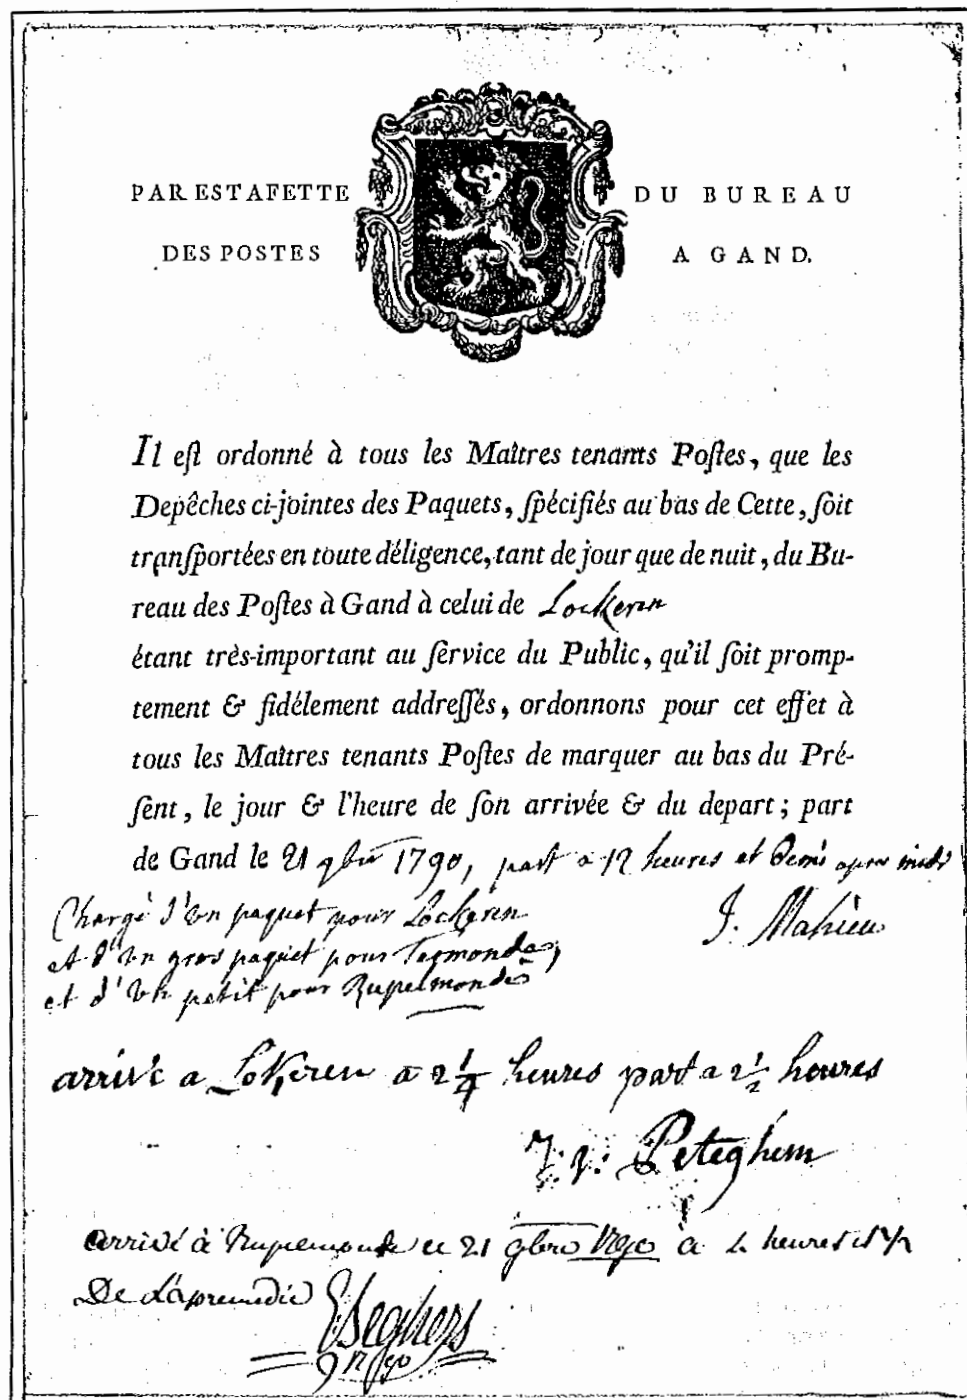 PAR ESTAFETTE DU BUREAU
DES POSTES A GAND.
Il eſt ordonné à tous les Maîtres tenants Poſtes, que les
Depêches ci-jointes des Paquets, ſpécifiés au bas de Cette, ſoit
tranſportées en toute déligence, tant de jour que de nuit, du Bu-
reau des Poſtes à Gand à celui de Lockeren
étant très-important au ſervice du Public, qu'il ſoit promp-
tement & fidélement addreſſés, ordonnons pour cet effet à
tous les Maîtres tenants Poſtes de marquer au bas du Pré-
ſent, le jour & l'heure de ſon arrivée & du depart; part
de Gand le 21 9bre 1790, part a 12 heures et demi apres midi
Chargé d'un paquet pour Lockeren
J. Mahieu
et d'un gros paquet pour Termonde,
et d'un petit pour Rupelmonde
arrivé a Lokeren a 2 1/4 heures part a 2 1/2 heures
Peteghem
arrivé à Rupelmonde le 21 9bre 1790 à heures
De L'apremedie
Seghers